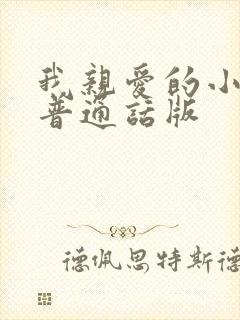 我親愛的小
普通話版
德佩思特斯德